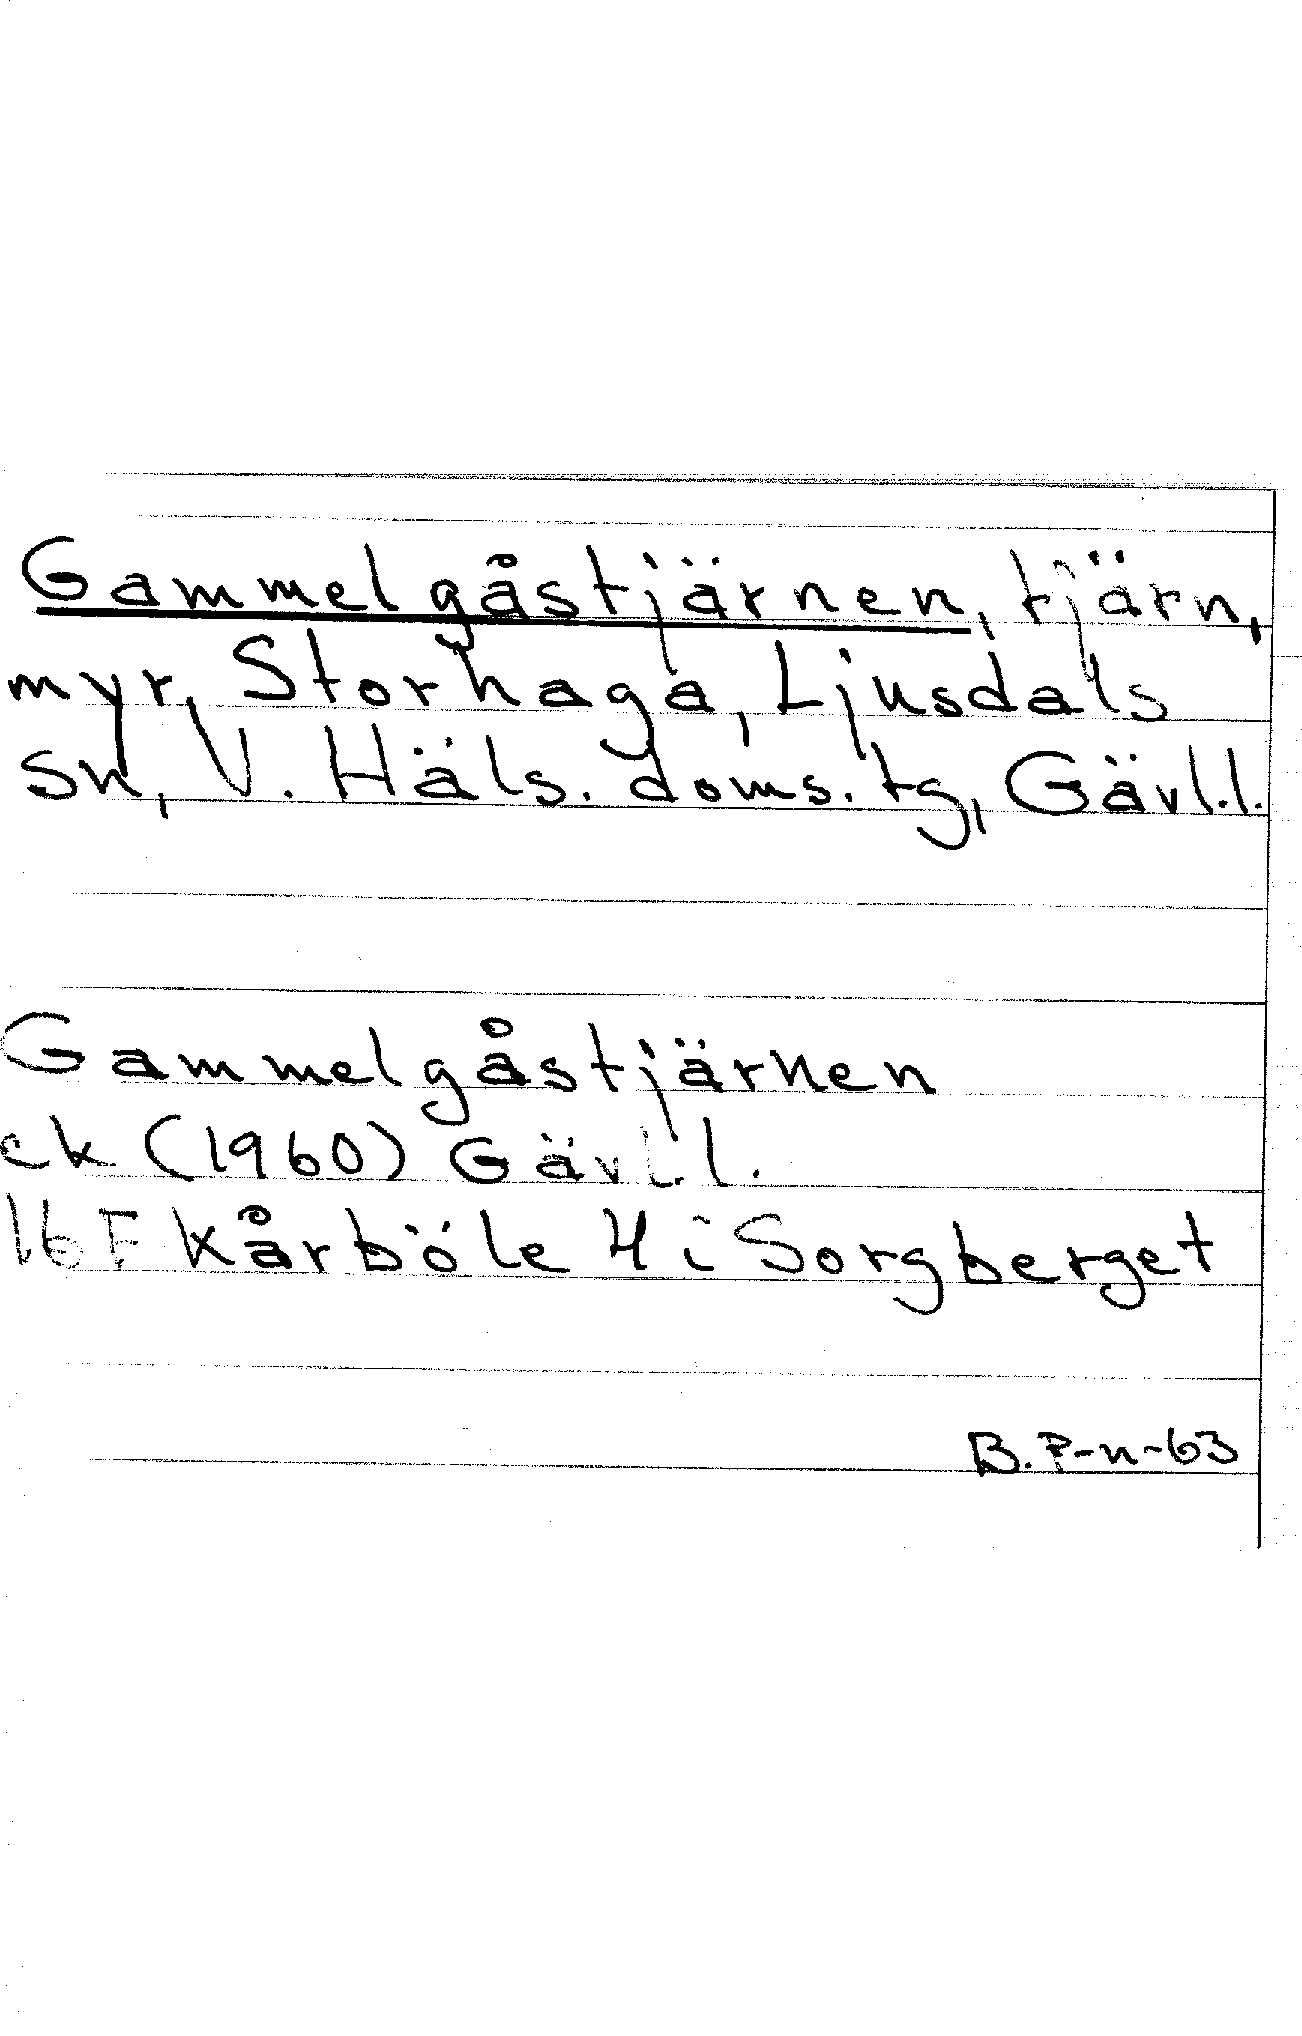 Gammelgåstjärnen, tjärn,
myr, Storhaga, Ljusdals
sn, V. Häls. doms. tg, Gävl.l.
Gammelgåstjärnen
ek (1960) Gävl.l.
16F Kårböle 4 i Sorgberget
B. P-n-63